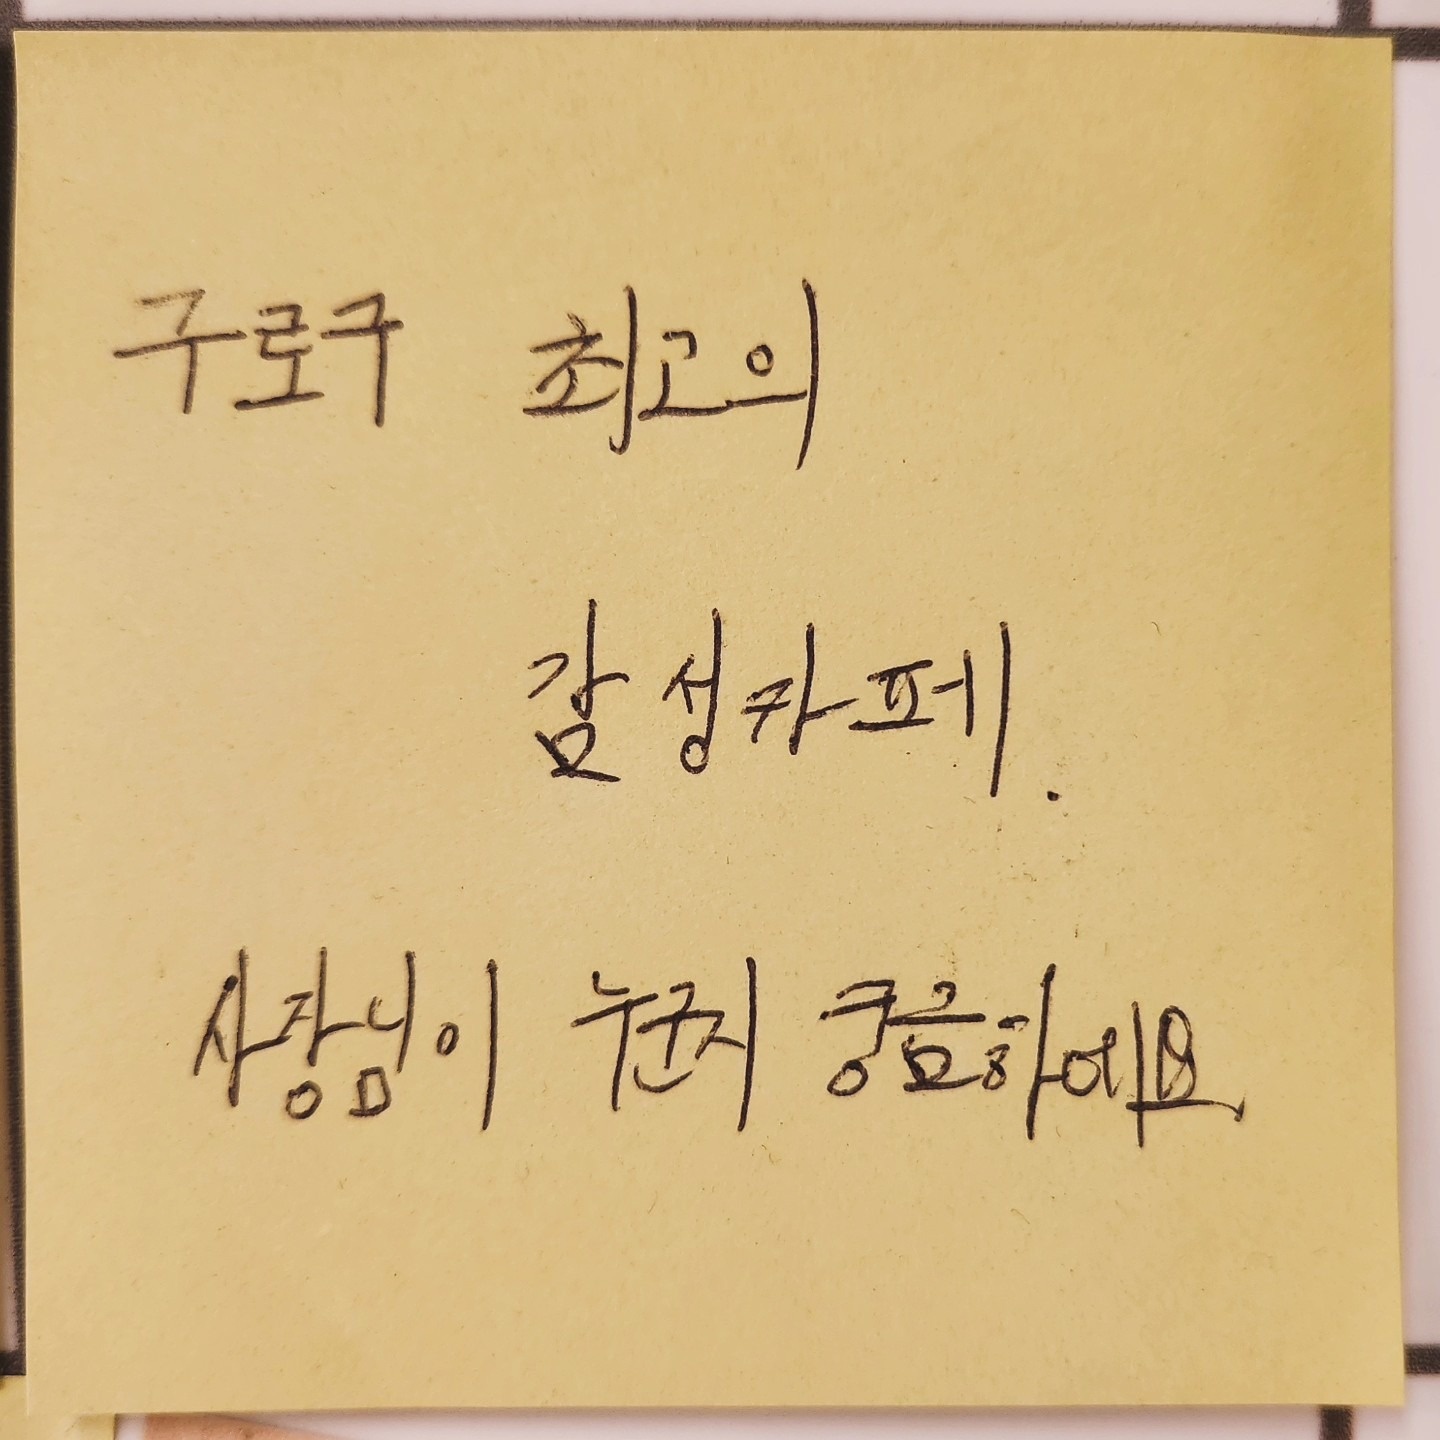 구로구 최고의
감성카페.
사장님이 누군지 궁금하에요